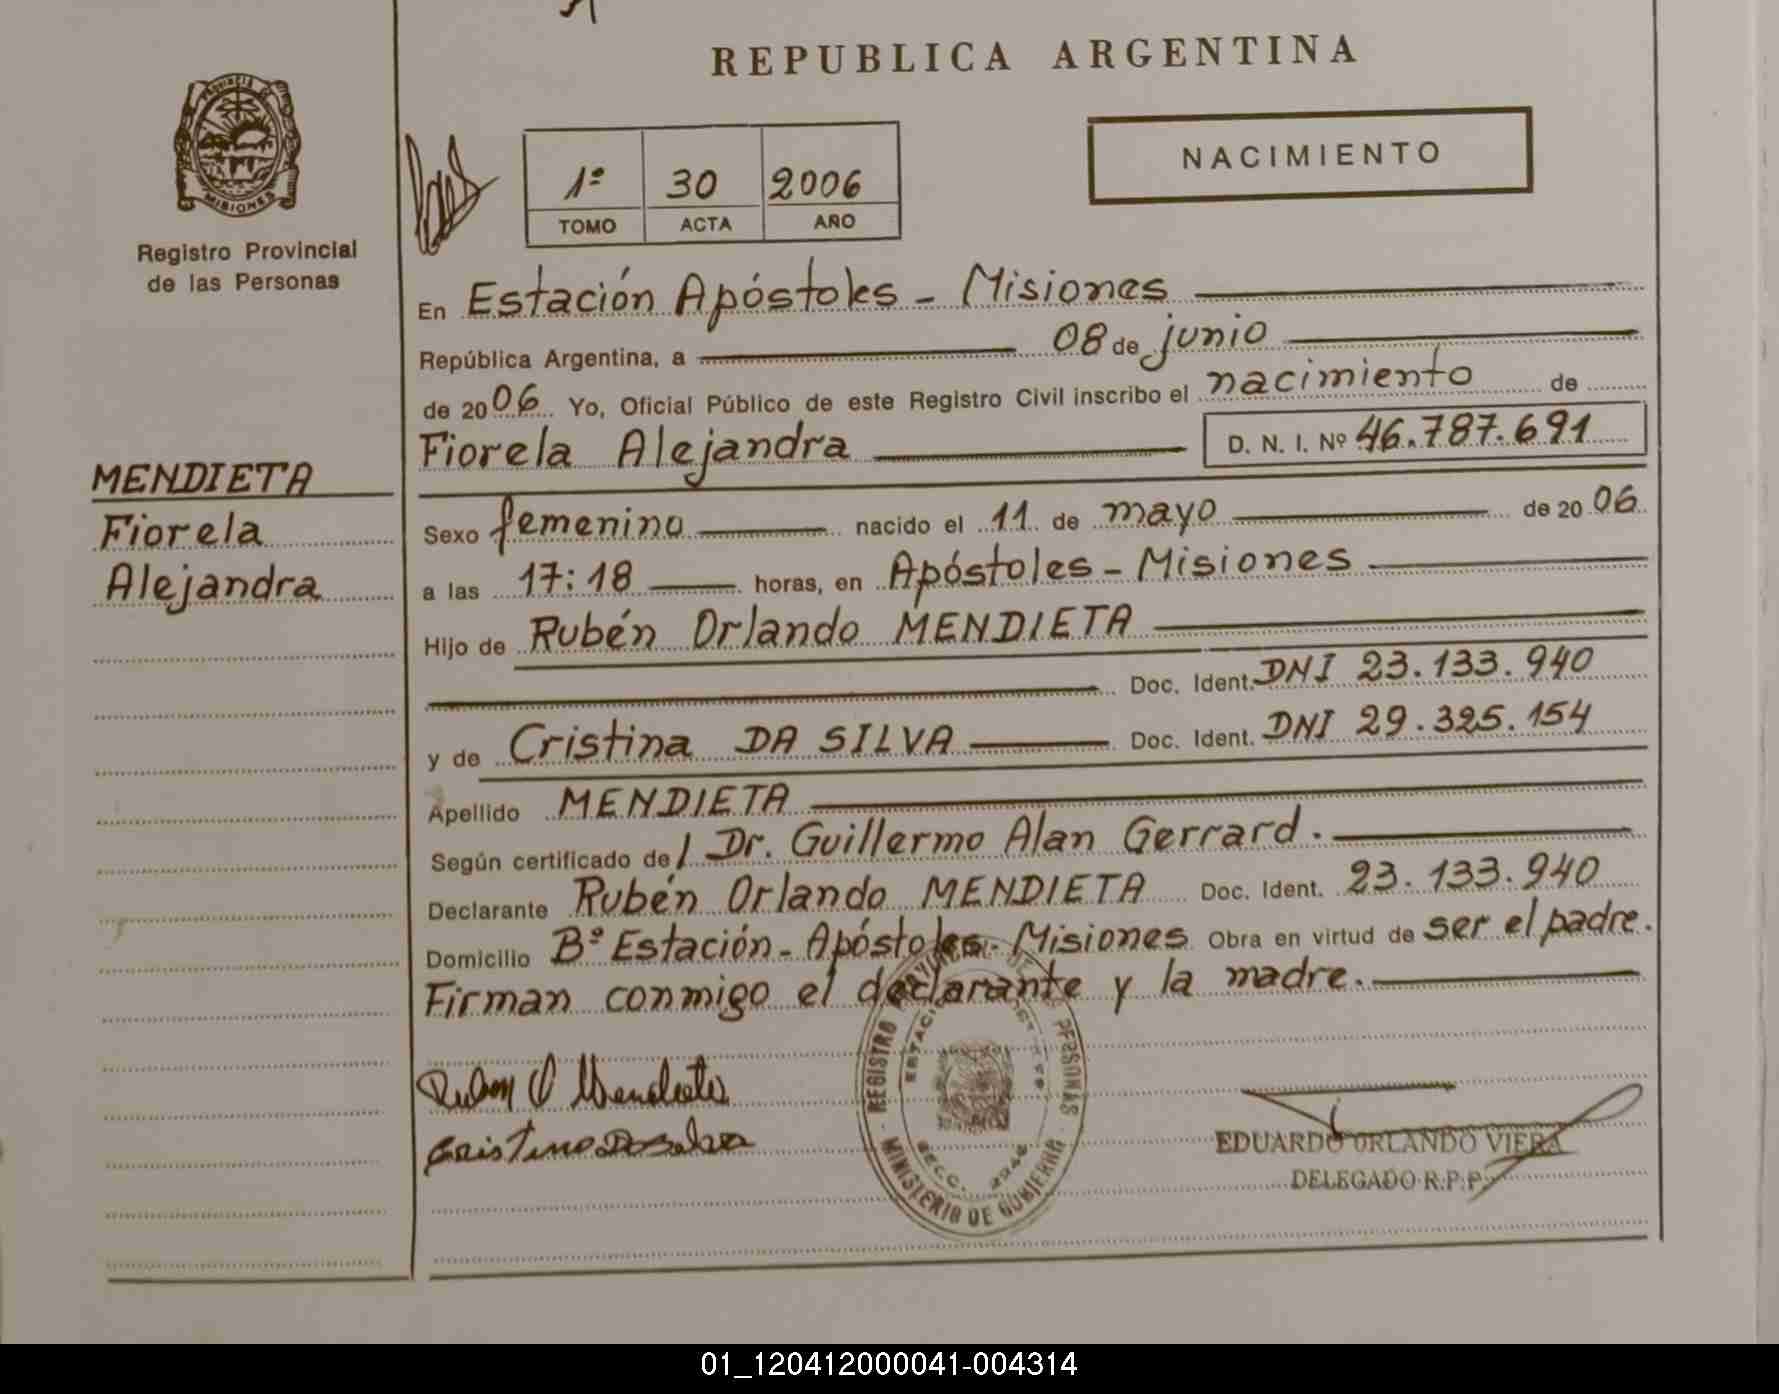 REPUBLICA ARGENTINA
PROVINCIA DE
MISIONES
Registro Provincial
de las Personas
1º 30 2006
TOMO ACTA AÑO
NACIMIENTO
En Estación Apóstoles - Misiones
República Argentina, a 08 de junio
de 2006 Yo, Oficial Público de este Registro Civil inscribo el nacimiento de
Fiorela Alejandra D. N. I. Nº 46.787.691
MENDIETA
Fiorela
Alejandra
Sexo femenino nacido el 11 de mayo de 2006
a las 17:18 horas, en Apóstoles - Misiones
Hijo de Rubén Orlando MENDIETA
Doc. Ident. DNI 23.133.940
y de Cristina DA SILVA Doc. Ident. DNI 29.325.154
Apellido MENDIETA
Según certificado de/ Dr. Guillermo Alan Gerrard.
Declarante Rubén Orlando MENDIETA Doc. Ident. 23.133.940
Domicilio Bº Estación - Apóstoles - Misiones Obra en virtud de ser el padre.
Firman conmigo el declarante y la madre.
Ruben O Mendieta
Cristina Da Silva
REGISTRO PROVINCIAL DE LAS PERSONAS
MINISTERIO DE GOBIERNO
EDUARDO ORLANDO VIERA
DELEGADO R.P.P.
01_120412000041-004314